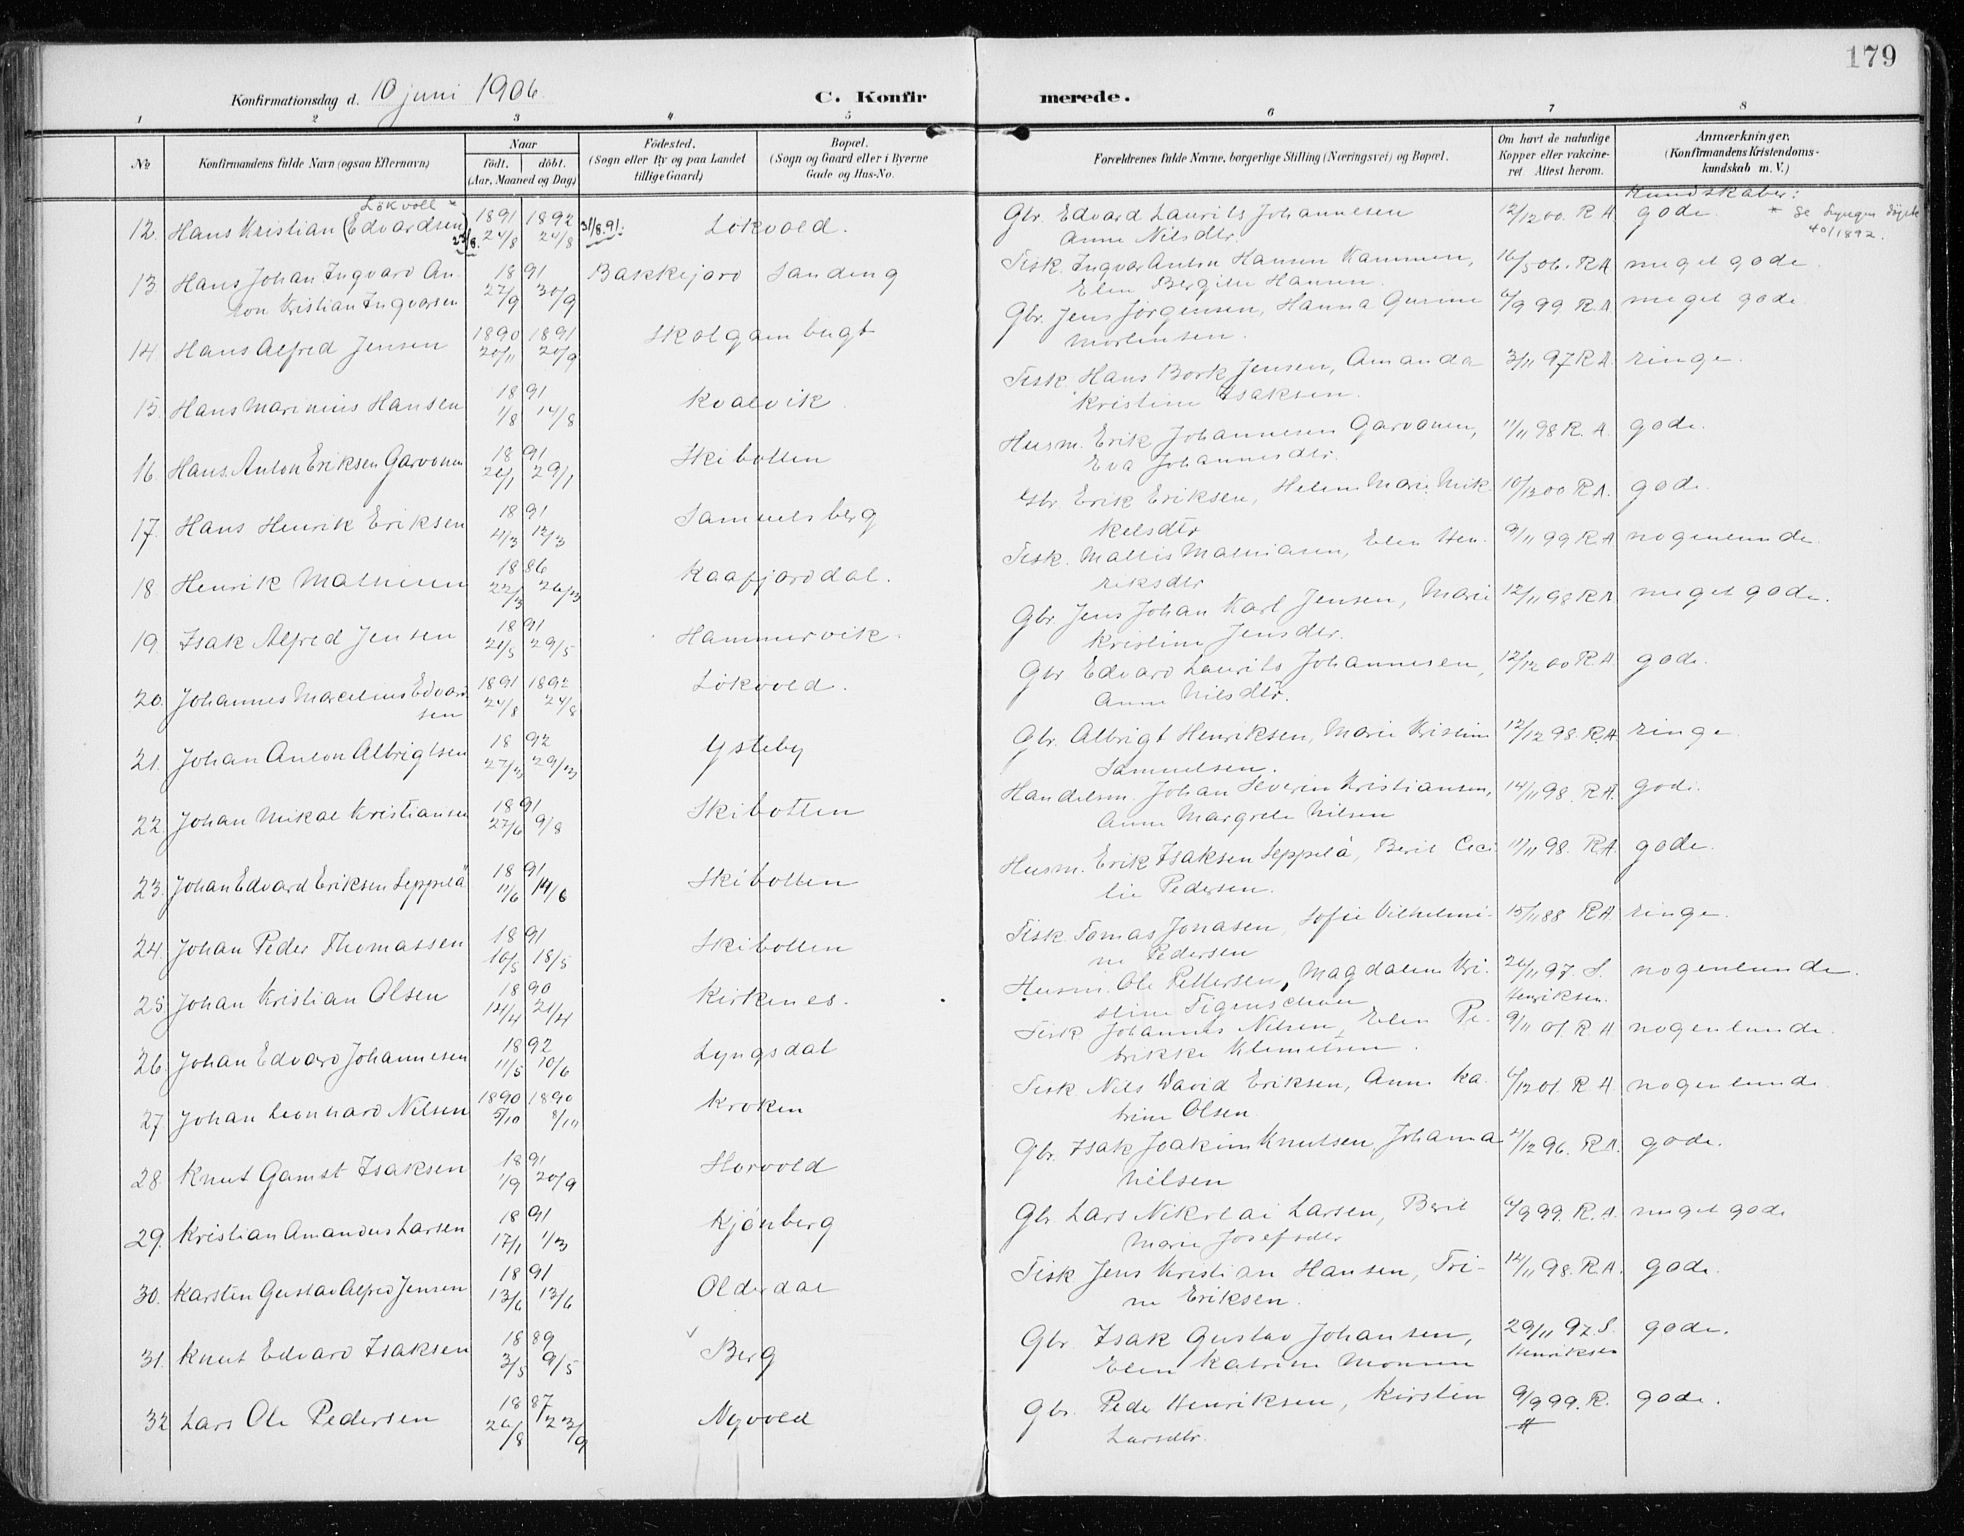 179
Konfirmationsdag d. 10 juni 1906.
C. Konfirmerede.
1 2 3 4 5 6 7 8
№
Konfirmandens fulde Navn (ogsaa Efternavn)
Naar
født. døbt.
(Aar, Maaned og Dag)
Fødested.
(Sogn eller By og paa Landet
tillige Gaard)
Bopæl.
(Sogn og Gaard eller i Byerne
Gade og Hus-No.
Forældrenes fulde Navne, borgerlige Stilling (Næringsvei) og Bopæl.
Om havt de naturlige
Kopper eller vakcine-
ret. Attest herom.
Anmærkninger.
(Konfirmandens Kristendoms-
kundskab m. V.)
Kundskaber:
Lökvoll *
12. Hans Kristian (Edvardsen) 1891 24/8 23/8. 1892 24/8 31/8.91. Lökvold. Gbr. Edvard Laurits Johannesen 12/12 00. R A. gode. * Se Lyngen
Anne Nilsdtr. 40/1892.
13 Hans Johan Ingvard An- 1891 27/9 30/9 Bakkejord Sandeng Fisk. Ingvar Anton Hansen Kammen, 16/5 06. R A meget gode
ton Kristian Ingvarsen Elen Bergitte Hansen.
14 Hans Alfred Jensen 1890 20/11 1891 20/9 Skolgambugt Gbr. Jens Jörgensen, Hanna Gurine 6/9 99 R A. meget gode.
Mortensen.
15. Hans Marinius Hansen 1891 1/8 14/8 Kvalvik Fisk. Hans Bork Jensen, Amanda 3/11 97 R A. ringe.
Kristine Isaksen.
16 Hans Anton Eriksen Garvonen 1891 26/1 29/1 Skibotten Husm. Erik Johannesen Garvonen, 11/11 98 R. A. gode.
Eva Johannesdtr.
17. Hans Henrik Eriksen 1891 4/3 12/3 Samuelsberg Gbr. Erik Eriksen, Helene Marie Mik- 10/12 00 R A. gode.
kelsdtr
18. Henrik Mathisen 1886 22/3 26/3 Kaafjorddal. Fisk. Mattis Mathiasen, Elen Hen- 9/11 99 R A nogenlunde.
riksdtr
19. Isak Alfred Jensen 1891 21/5 29/5 Hammervik. Gbr Jens Johan Karl Jensen, Marie 12/11 98 R A meget gode.
Kristine Jensdtr.
20. Johannes Marcelius Edvard- 1891 24/8 1892 24/8 Lökvold. Gbr Edvard Laurits Johannesen, 12/12 00 R A. gode.
sen Anne Nilsdtr.
21. Johan Anton Albrigtsen 1892 27/3 29/3 Ysteby Gbr. Albrigt Henriksen, Marie Kristine 12/12 98. R. A. ringe
Samuelsen.
22. Johan Mikal Kristiansen 1891 27/6 9/8 Skibotten Handelsm. Johan Severin Kristiansen, 14/11 98. R A. gode.
Anne Margrete Nilsen
23. Johan Edvard Eriksen Seppelä 1891 11/6 14/6 Skibotten Husm. Erik Isaksen Seppelä, Berit Ceci- 11/11 98. R A. gode.
lie Pedersen.
24. Johan Peder Thomassen 1891 16/5 18/5 Skibotten Fisk. Tomas Jonasen, Sofie Vilhelmi- 15/11 88 R A ringe.
ne Pedersen
25 Johan Kristian Olsen 1890 14/4 21/4 Kirkenes. Husm. Ole Pettersen, Magdalene Kri- 26/11 97. S. nogenlunde.
stine Figenschou Henriksen.
26. Johan Edvard Johannesen 1892 11/5 10/6 Lyngsdal Fisk Johannes Nilsen, Elen Pe- 9/11 01. R. A nogenlunde.
trikke Klemetsen.
27 Johan Leonhard Nilsen 1890 5/10 1890 8/11 Kroken Fisk Nils David Eriksen, Anne Ka- 6/12 01. R A. nogenlunde
trine Olsen.
28. Knut Gamst Isaksen 1891 1/9 20/9 Horvold Gbr. Isak Joakim Knutsen, Johanna 4/12 96. R A. gode.
Nilsen
29. Kristian Amandus Larsen 1891 17/1 1/3 Kjönberg Gbr. Lars Nikolai Larsen, Berit 6/9 99. R. A. meget gode
Marie Josefsdtr
30. Karsten Gustav Alfred Jensen 1891 13/6 13/6 Olderdal Fisk Jens Kristian Hansen, Tri- 12/11 98. R. A. gode.
ne Eriksen.
31. Knut Edvard Isaksen 1889 3/5 9/5 Berg Gbr. Isak Gustav Johansen, 29/11 97. S. gode.
Elen Katrine Monsen Henriksen
32 Lars Ole Pedersen 1887 26/8 23/9 Nyvold Gbr. Peder Henriksen, Kirsten 9/9 99. R. A gode.
Larsdtr.